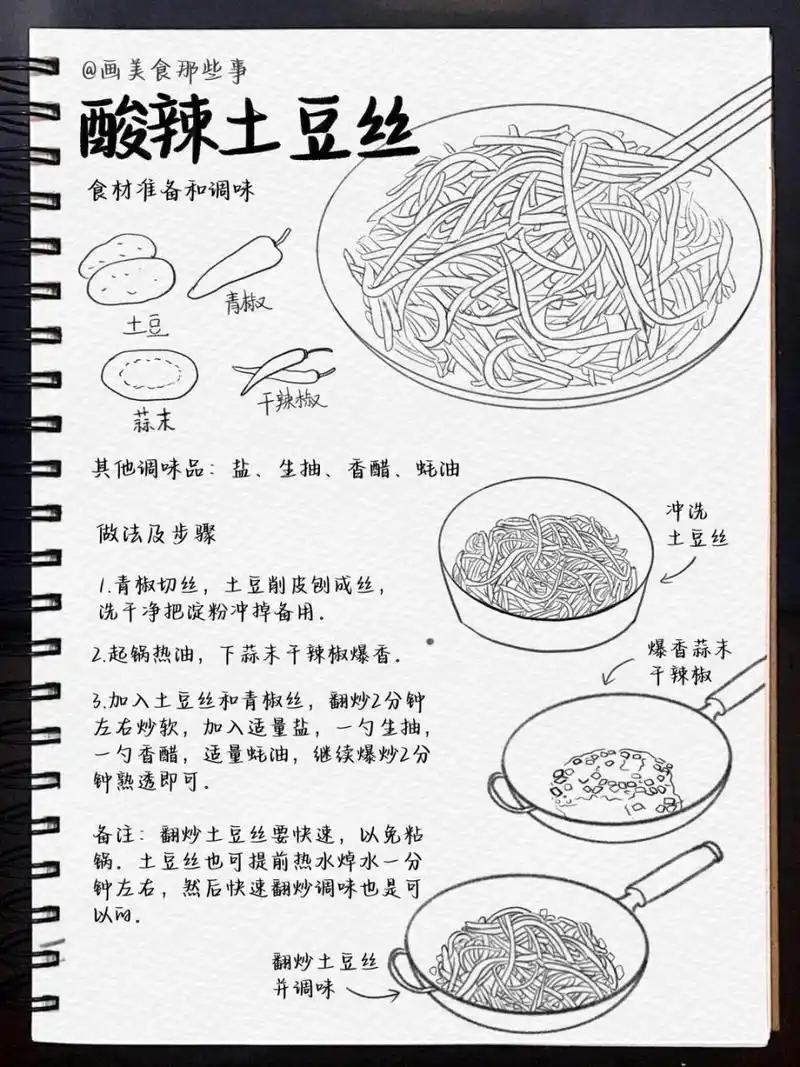 @画美食那些事
酸辣土豆丝
食材准备和调味
土豆
青椒
蒜末
干辣椒
其他调味品：盐、生抽、香醋、蚝油
做法及步骤
1.青椒切丝，土豆削皮刨成丝，
洗干净把淀粉冲掉备用.
2.起锅热油，下蒜末干辣椒爆香.
3.加入土豆丝和青椒丝，翻炒2分钟
左右炒软，加入适量盐，一勺生抽，
一勺香醋，适量蚝油，继续爆炒2分
钟熟透即可.
备注：翻炒土豆丝要快速，以免粘
锅.土豆丝也可提前热水焯水一分
钟左右，然后快速翻炒调味也是可
以的.
冲洗
土豆丝
爆香蒜末
干辣椒
翻炒土豆丝
并调味